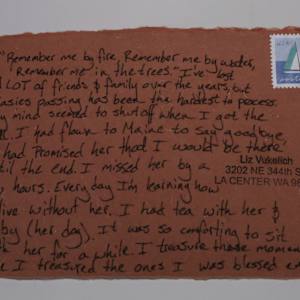 "Remember me by fire. Remember me by water,
Remember me in the trees." I've lost
A LOT of friends & family over the years, but
asies passing has been the hardest to process.
y mind seemed to shut off when I got the
I had flown to Maine to say goodbye,
had Promised her that I would be there
til the end. I missed her by a
hours. Everyday I'm learning how
live without her. I had tea with her &
by (her dog). It was so comforting to sit
th her for a while. I treasure those momen
I treasured the ones I was blessed
Liz Vukelich
3202 NE 344th S
LA CENTER WA 98